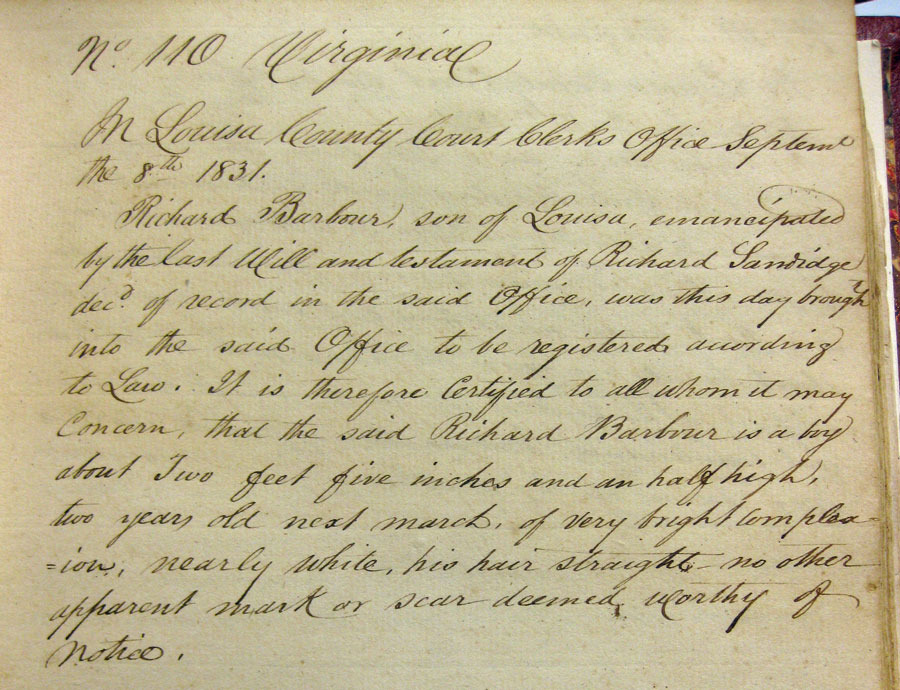 No. 110 Virginia
In Louisa County Court Clerks Office Septemr
the 8th 1831.
Richard Barbour, son of Louisa, emancipated
by the last Will and testament of Richard Sandidge
decd. of record in the said Office, was this day brought
into the said Office to be registered according
to Law. It is therefore Certified to all whom it may
Concern, that the said Richard Barbour is a boy
about Two feet five inches and an half high,
two years old next march, of very bright complex=
=ion, nearly white, his hair straight - no other
apparent mark or scar deemed worthy of
notice.